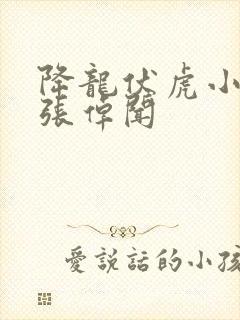 降龍伏虎小
張倬聞
愛說話的小孩